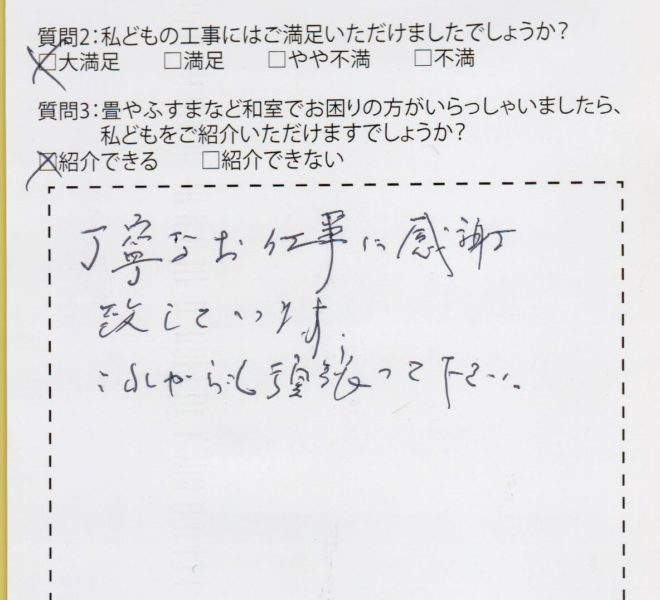 質問2:私どもの工事にはご満足いただけましたでしょうか?
☒大満足 □満足 □やや不満 □不満
質問3:畳やふすまなど和室でお困りの方がいらっしゃいましたら、
私どもをご紹介いただけますでしょうか?
☒紹介できる □紹介できない
丁寧なお仕事に感謝
致しています。
これからも頑張って下さい。